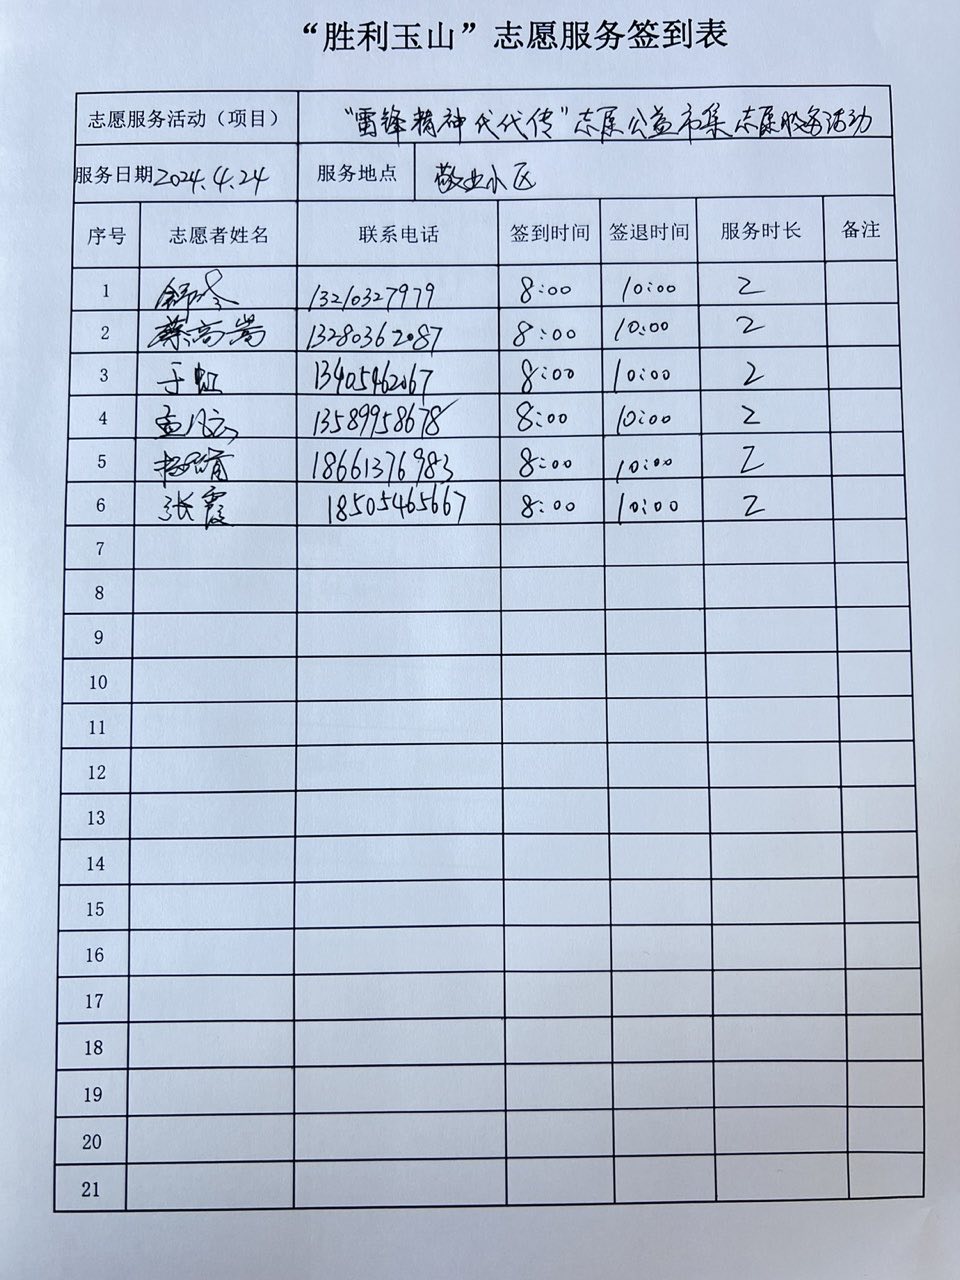 “胜利玉山”志愿服务签到表
志愿服务活动（项目） “雷锋精神代代传”志愿公益市集志愿服务活动
服务日期 2024.4.24 服务地点 敬业小区
序号 志愿者姓名 联系电话 签到时间 签退时间 服务时长 备注
1 13210327979 8:00 10:00 2
2 蔡高嵩 13280362087 8:00 10:00 2
3 于虹 13405462067 8:00 10:00 2
4 13589958678 8:00 10:00 2
5 18661376983 8:00 10:00 2
6 张霞 18505465667 8:00 10:00 2
7
8
9
10
11
12
13
14
15
16
17
18
19
20
21